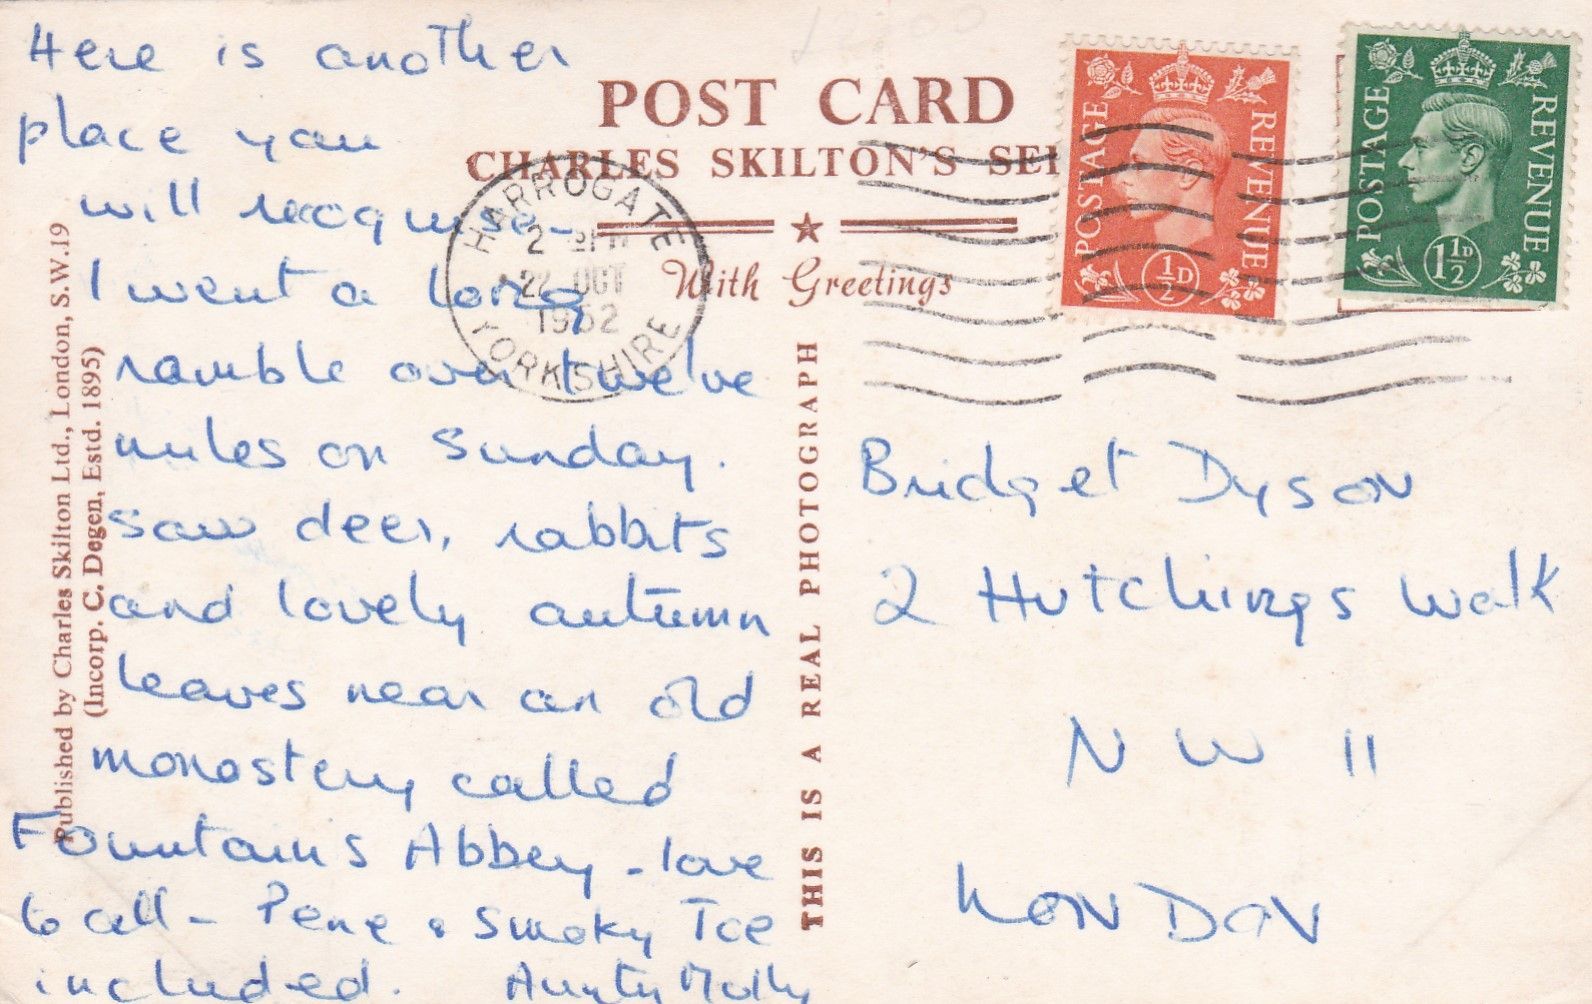 Here is another
place you
will recognise –
I went a long
ramble over twelve
miles on Sunday.
Saw deer, rabbits
and lovely autumn
leaves near an old
monastery called
Fountains Abbey – love
to all – Pene & Smoky Toe
included. Aunty Molly
POST CARD
CHARLES SKILTON'S
With Greetings
HARROGATE
22 OCT
1952
YORKSHIRE
POSTAGE REVENUE
½D
POSTAGE REVENUE
1½D
Published by Charles Skilton Ltd., London, S.W.19
(Incorp. C. Degen, Estd. 1895)
THIS IS A REAL PHOTOGRAPH
Bridget Dyson
2 Hutchings Walk
NW 11
LONDON